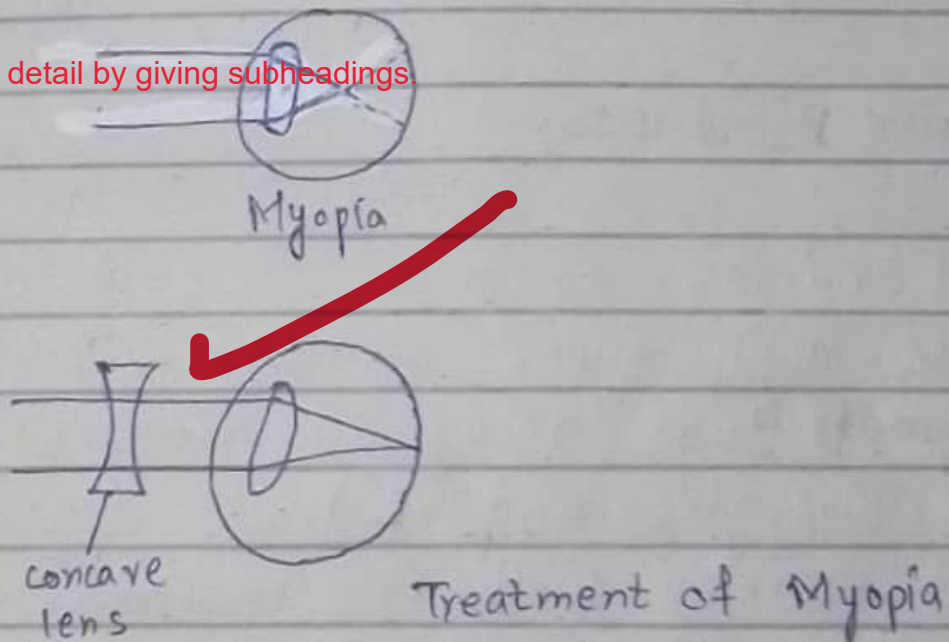 detail by giving subheadings.
Myopia
concave
lens
Treatment of Myopia